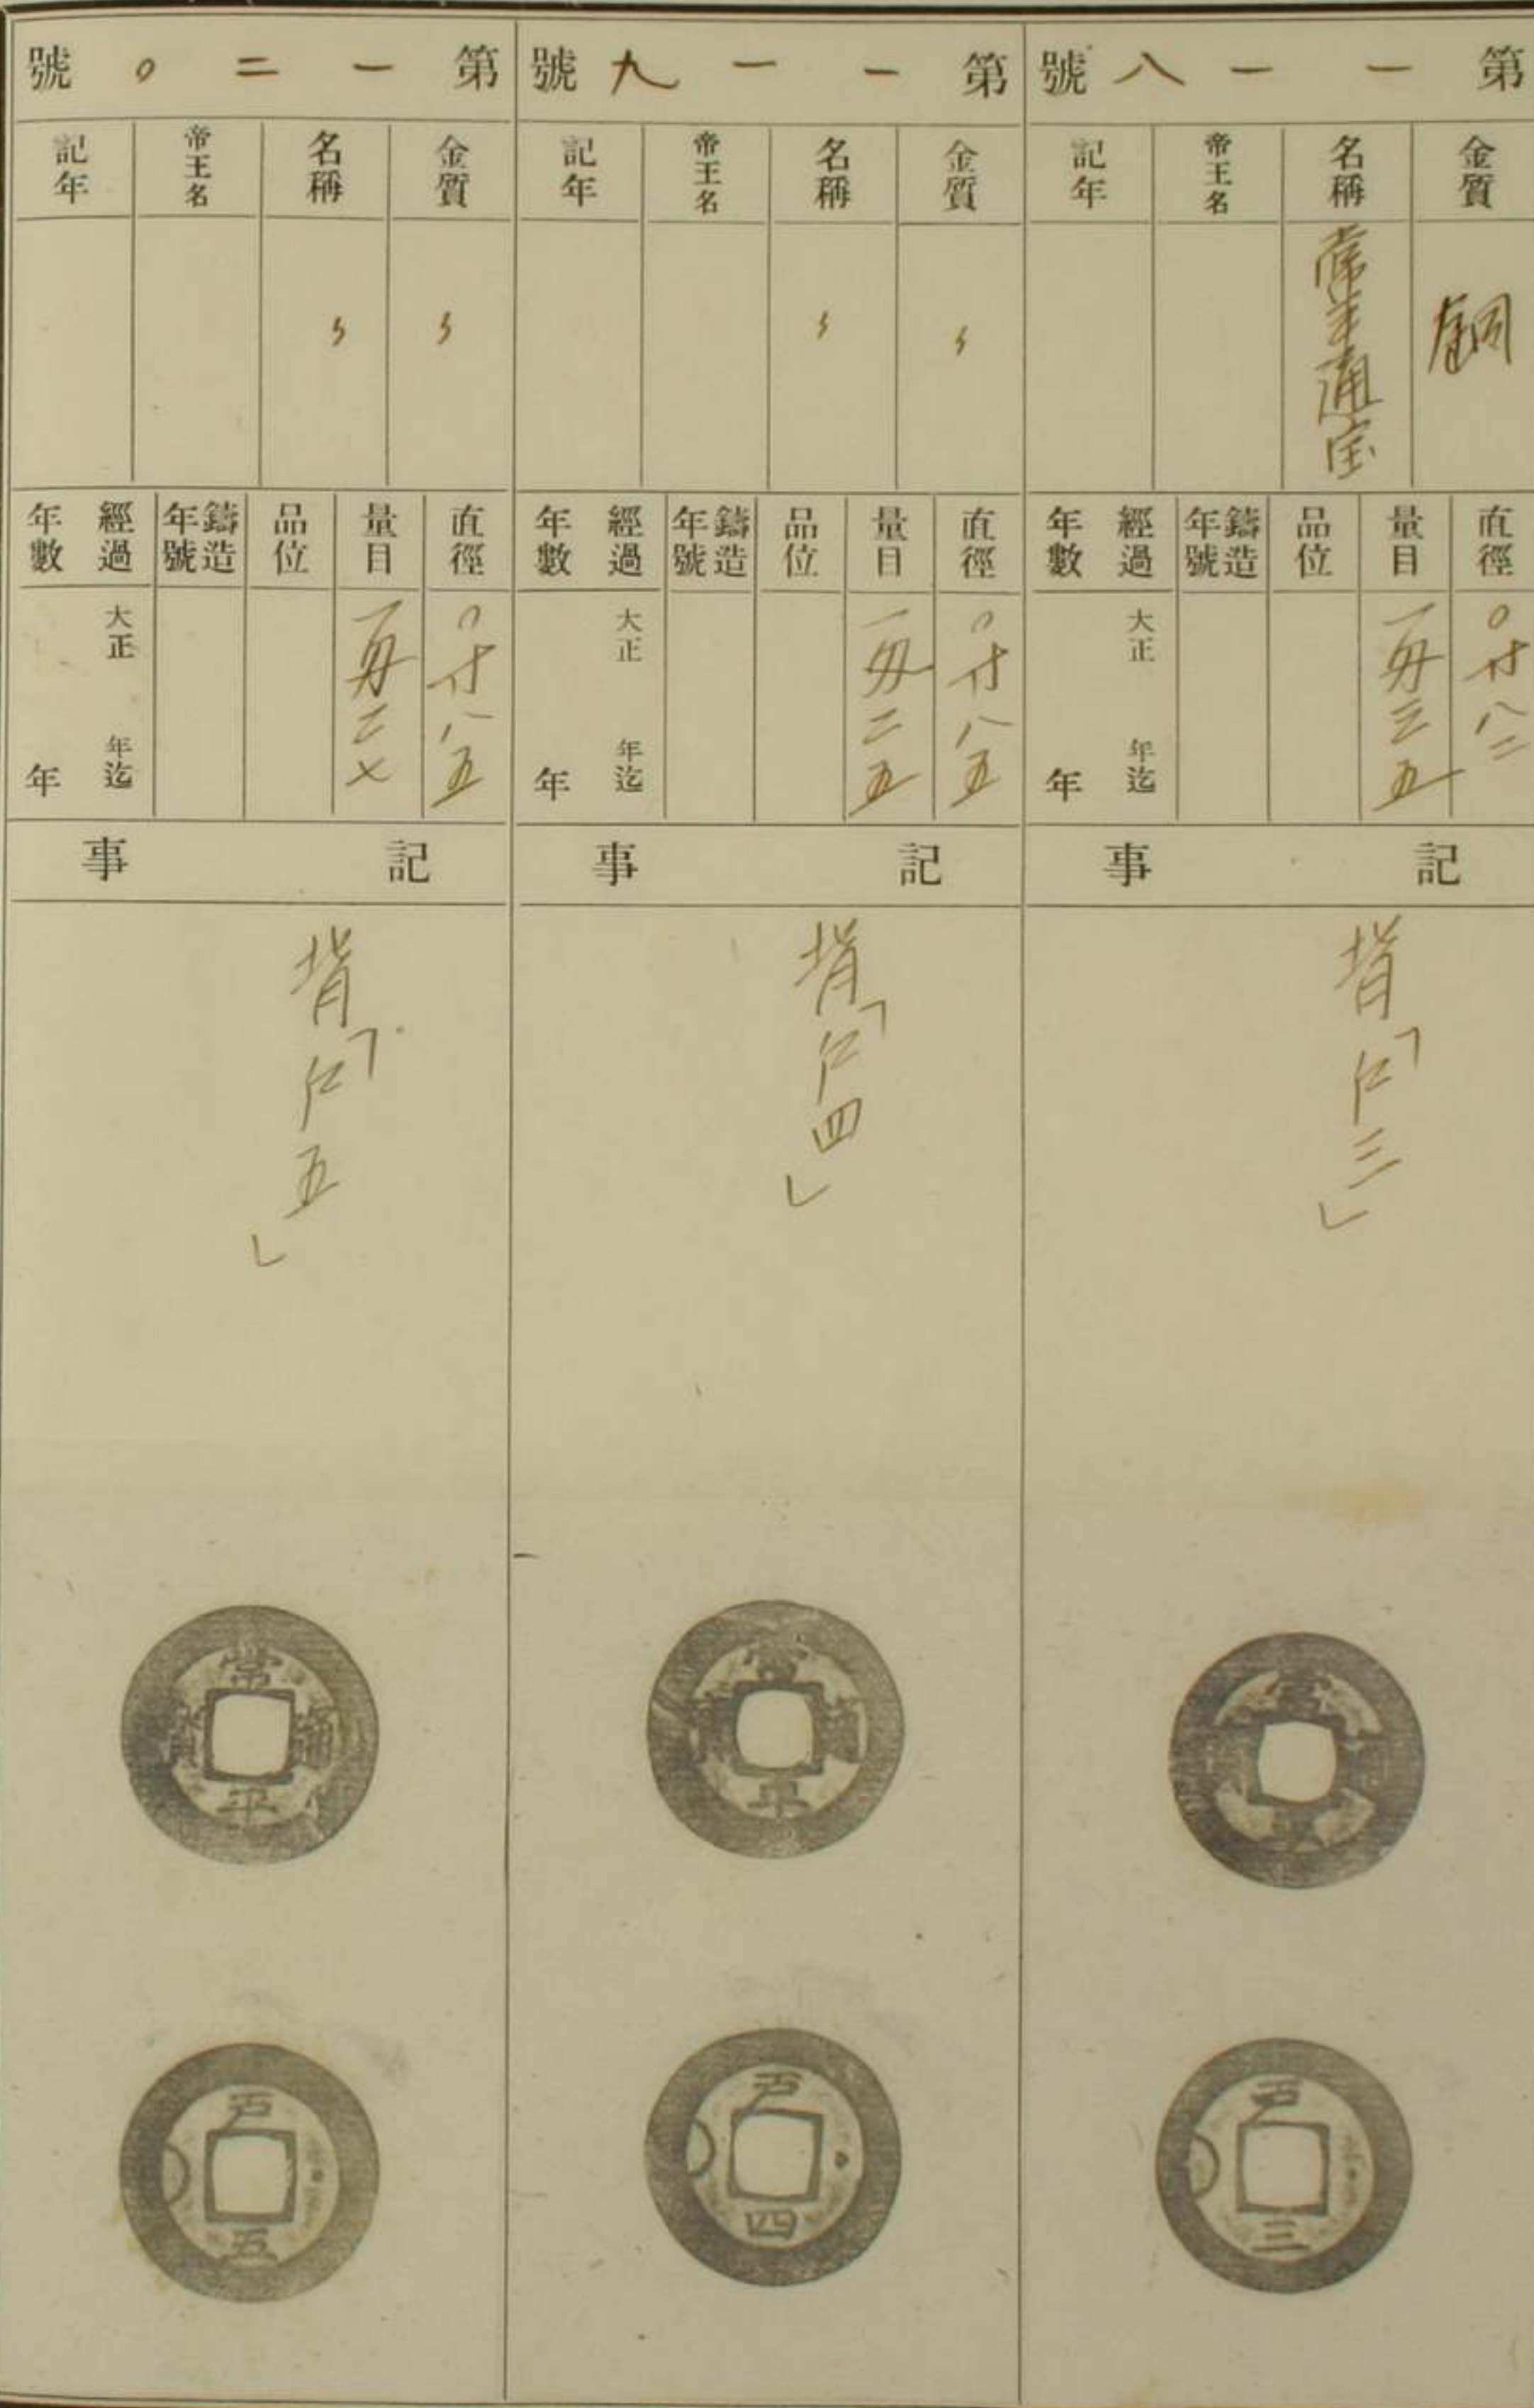 第一一八號
金質
名稱
帝王名
記年
銅
常平通宝
直徑
量目
品位
鑄造年號
經過年數
〇寸八二
一匁三五
大正 年迄
年
記事
背「戸三」
常
戸
三
第一一九號
金質
名稱
帝王名
記年
〻
〻
直徑
量目
品位
鑄造年號
經過年數
〇寸八五
一匁二五
大正 年迄
年
記事
背「戸四」
常平通寶
戸
四
第一二〇號
金質
名稱
帝王名
記年
〻
〻
直徑
量目
品位
鑄造年號
經過年數
〇寸八五
一匁二七
大正 年迄
年
記事
背「戸五」
常平通寶
戸
五